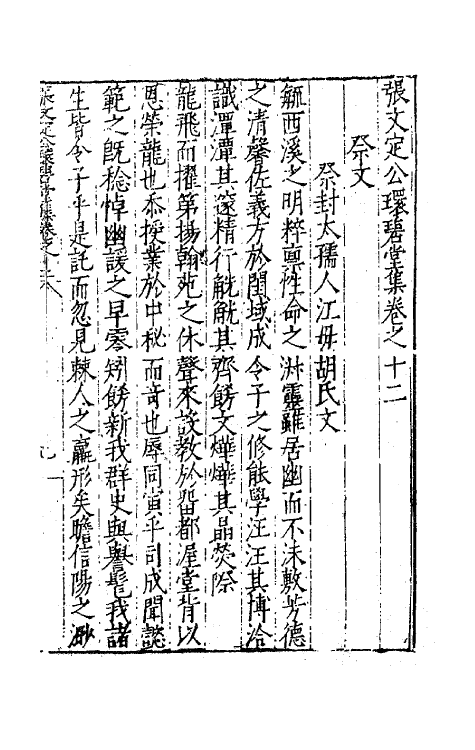 張文定公環碧堂集卷之十二
祭文
祭封太孺人江母胡氏文
緬西溪之明粹稟性命之淑靈雖居幽而不沬敷芳德
之清馨佐義方於閨域成令子之修能學汪汪其博洽
識潭潭其邃精行觥觥其齊餝文燁燁其晶熒際
龍飛而擢第揚翰苑之休聲來設教於留都渥堂背以
恩榮龍也忝授業於中秘而竒也辱同寅乎司成聞懿
範之旣稔悼幽諼之早零矧餝新我群史與譽髦我諸
生皆令子乎是託而忽見棘人之羸形矣瞻信陽之渺